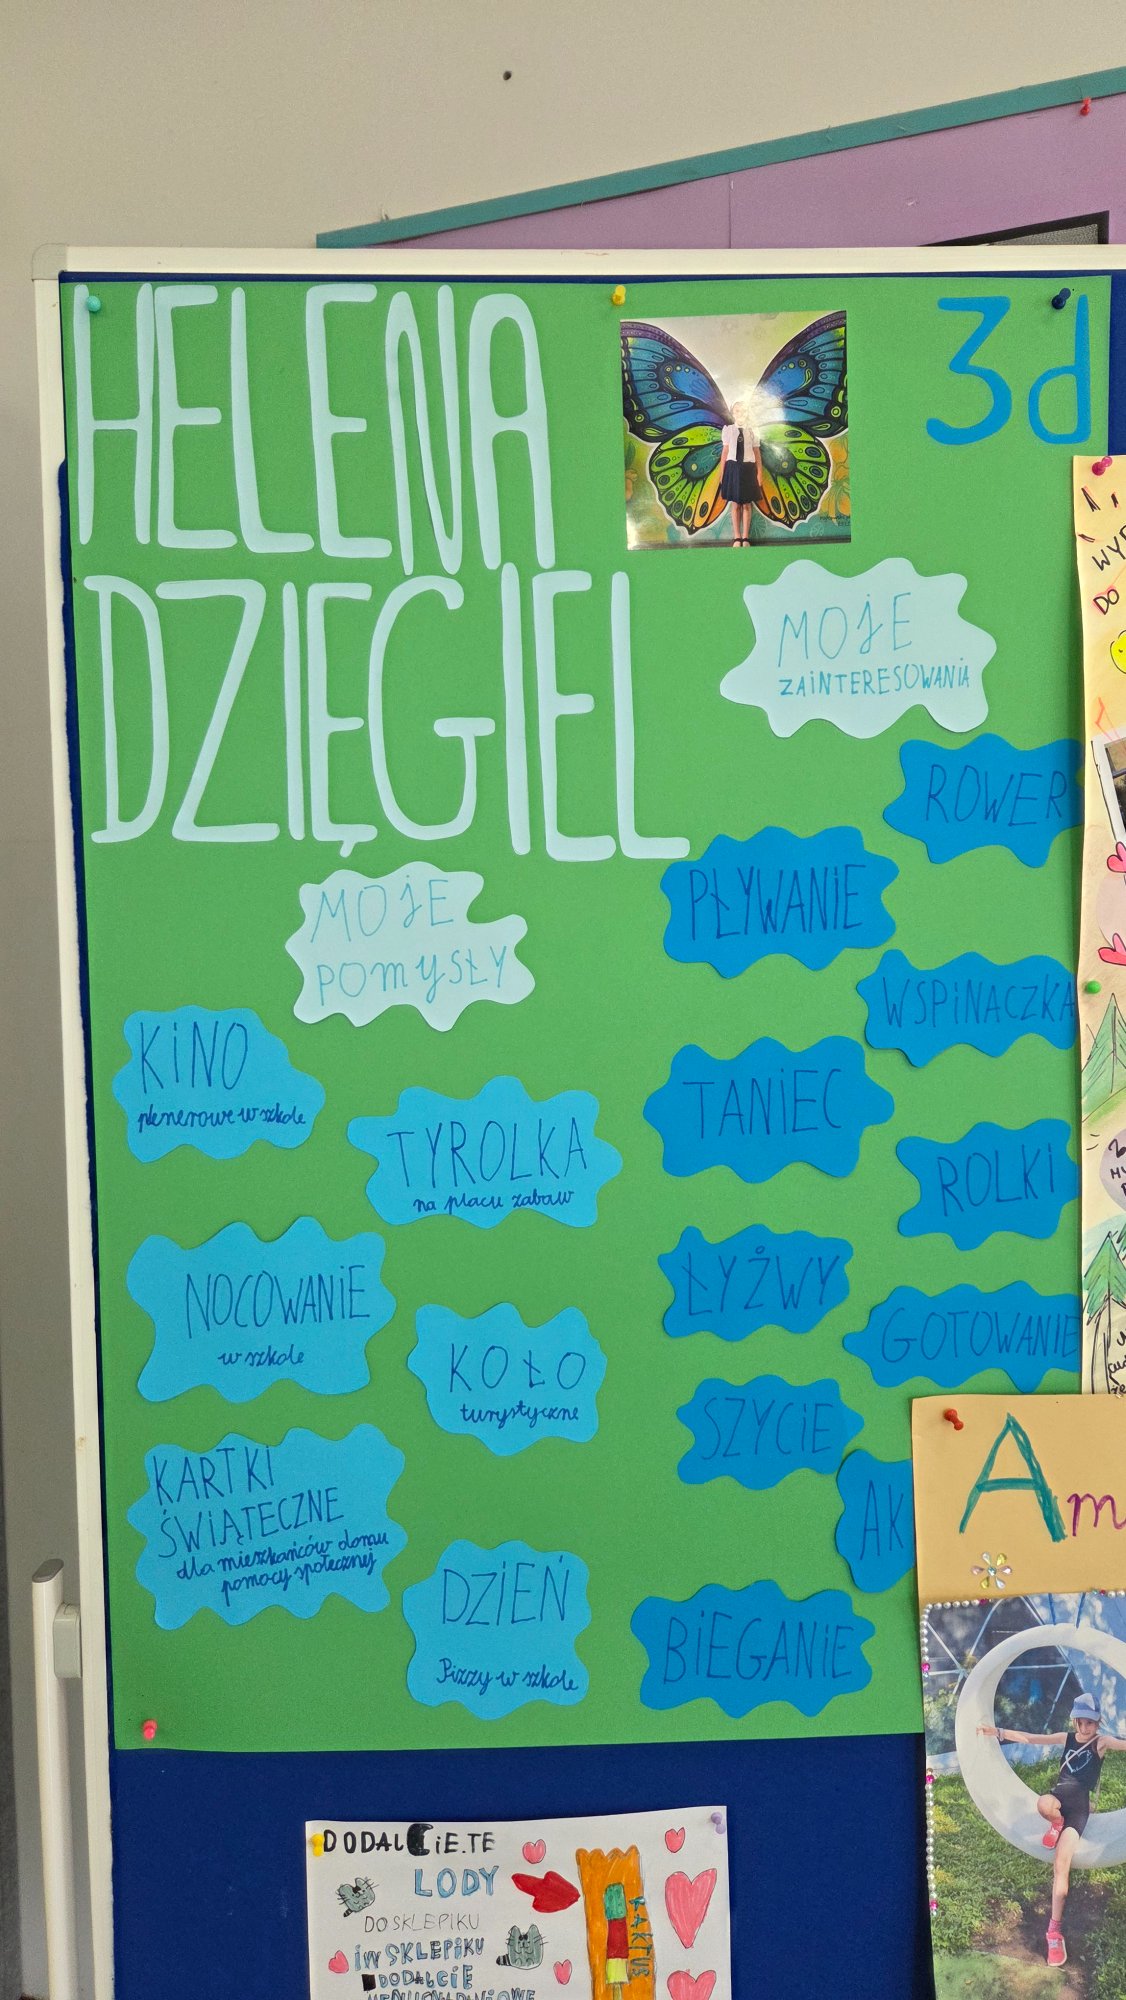 HELENA
DZIĘGIEL
3d
MOJE
ZAINTERESOWANIA
ROWER
PŁYWANIE
WSPINACZKA
TANIEC
ROLKI
ŁYŻWY
GOTOWANIE
SZYCIE
AK
BIEGANIE
MOJE
POMYSŁY
KINO
plenerowe w szkole
TYROLKA
na placu zabaw
NOCOWANIE
w szkole
KOŁO
turystyczne
KARTKI
ŚWIĄTECZNE
dla mieszkańców domu
pomocy społecznej
DZIEŃ
Pizzy w szkole
WYP
DO
Am
DODALCIE.TE
LODY
DO SKLEPIKU
IW SKLEPIKU
DODALCIE
KAKTUS